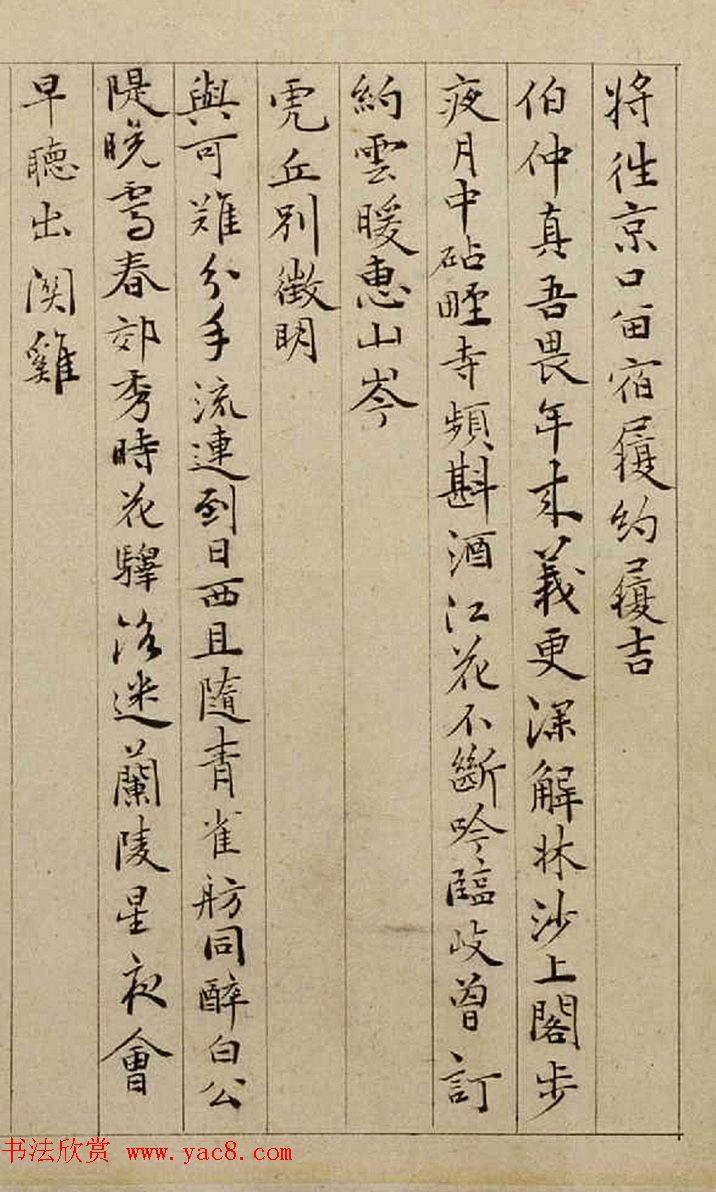 將往京口畱宿履約履吉
伯仲真吾畏年来義更深解牀沙上閣步
夜月中砧畦寺頻斟酒江花不斷吟臨岐曾訂
約雲暖惠山岑
虎丘别徵明
與可難分手流連到日西且隨青雀舫同醉白公
隄晚霭春郊秀時花驛路迷蘭陵星夜會
早聽出関雞
书法欣赏 www.yac8.com